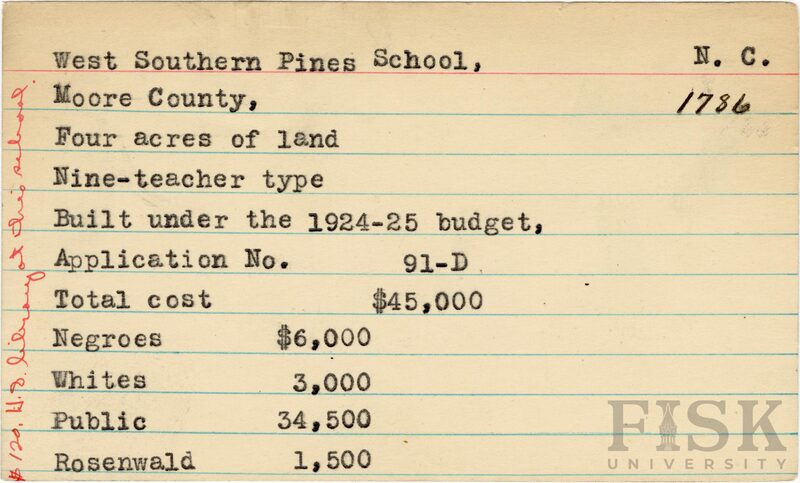 West Southern Pines School, N. C.
Moore County, 1786
Four acres of land
Nine-teacher type
Built under the 1924-25 budget,
Application No. 91-D
Total cost $45,000
Negroes $6,000
Whites 3,000
Public 34,500
Rosenwald 1,500
$120. H.S. library at this school.
FISK
UNIVERSITY